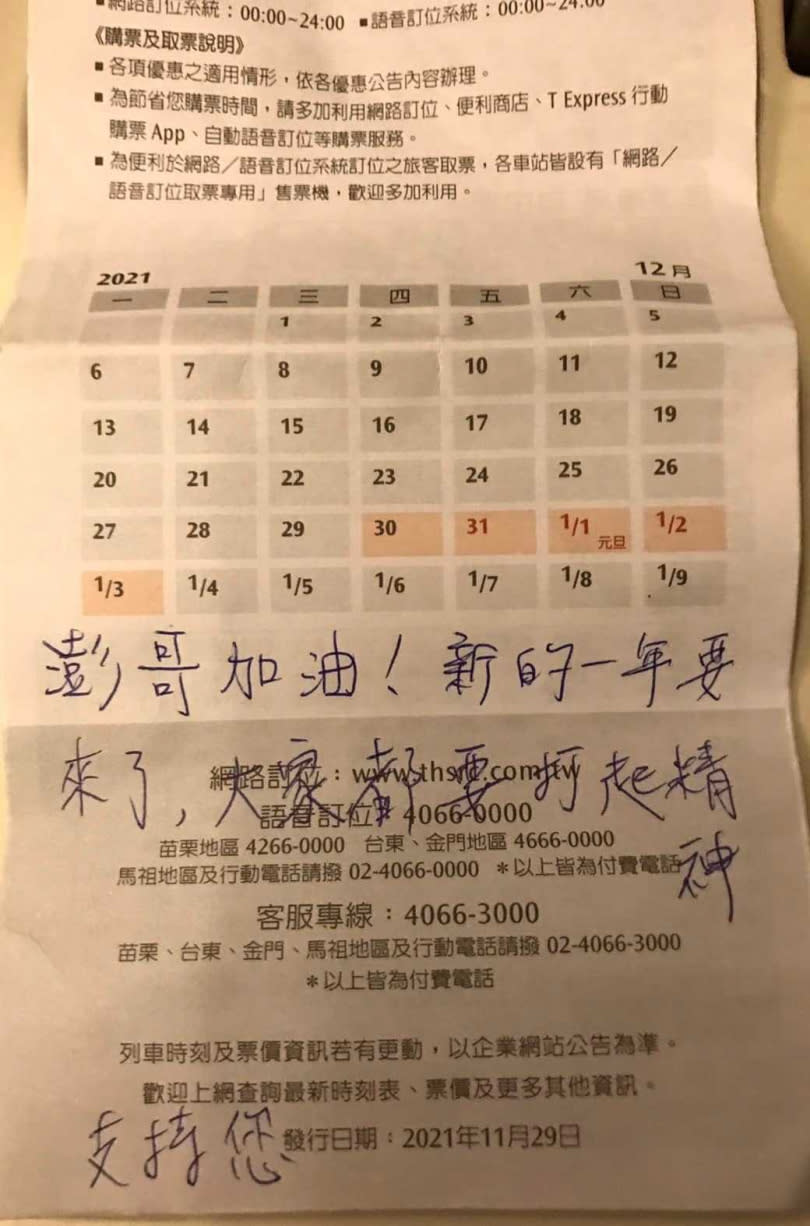 ■網路訂位系統：00:00~24:00 ■語音訂位系統：00:00~24:00
《購票及取票說明》
■各項優惠之適用情形，依各優惠公告內容辦理。
■為節省您購票時間，請多加利用網路訂位、便利商店、T Express 行動
購票 App、自動語音訂位等購票服務。
■為便利於網路／語音訂位系統訂位之旅客取票，各車站皆設有「網路／
語音訂位取票專用」售票機，歡迎多加利用。
2021 12月
一 二 三 四 五 六 日
1 2 3 4 5
6 7 8 9 10 11 12
13 14 15 16 17 18 19
20 21 22 23 24 25 26
27 28 29 30 31 1/1 元旦 1/2
1/3 1/4 1/5 1/6 1/7 1/8 1/9
澎哥加油！新的一年要
來了，大家都要打起精
神
網路訂位：www.thsrc.com.tw
語音訂位：4066-0000
苗栗地區 4266-0000 台東、金門地區 4666-0000
馬祖地區及行動電話請撥 02-4066-0000 ＊以上皆為付費電話
客服專線：4066-3000
苗栗、台東、金門、馬祖地區及行動電話請撥 02-4066-3000
＊以上皆為付費電話
列車時刻及票價資訊若有更動，以企業網站公告為準。
歡迎上網查詢最新時刻表、票價及更多其他資訊。
支持您
發行日期：2021年11月29日